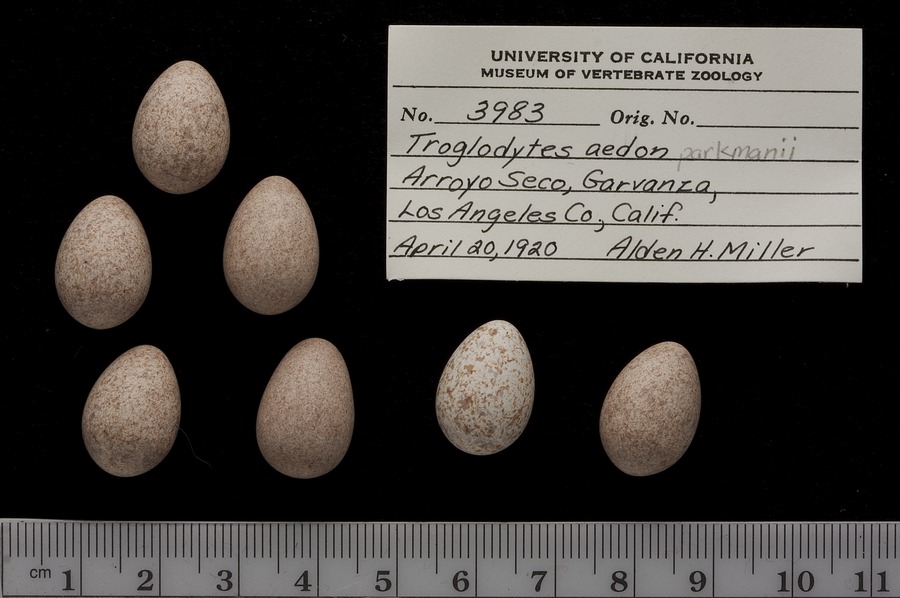 UNIVERSITY OF CALIFORNIA
MUSEUM OF VERTEBRATE ZOOLOGY
No. 3983 Orig. No.
Troglodytes aedon parkmanii
Arroyo Seco, Garvanza,
Los Angeles Co., Calif.
April 20, 1920 Alden H. Miller
cm 1 2 3 4 5 6 7 8 9 10 11